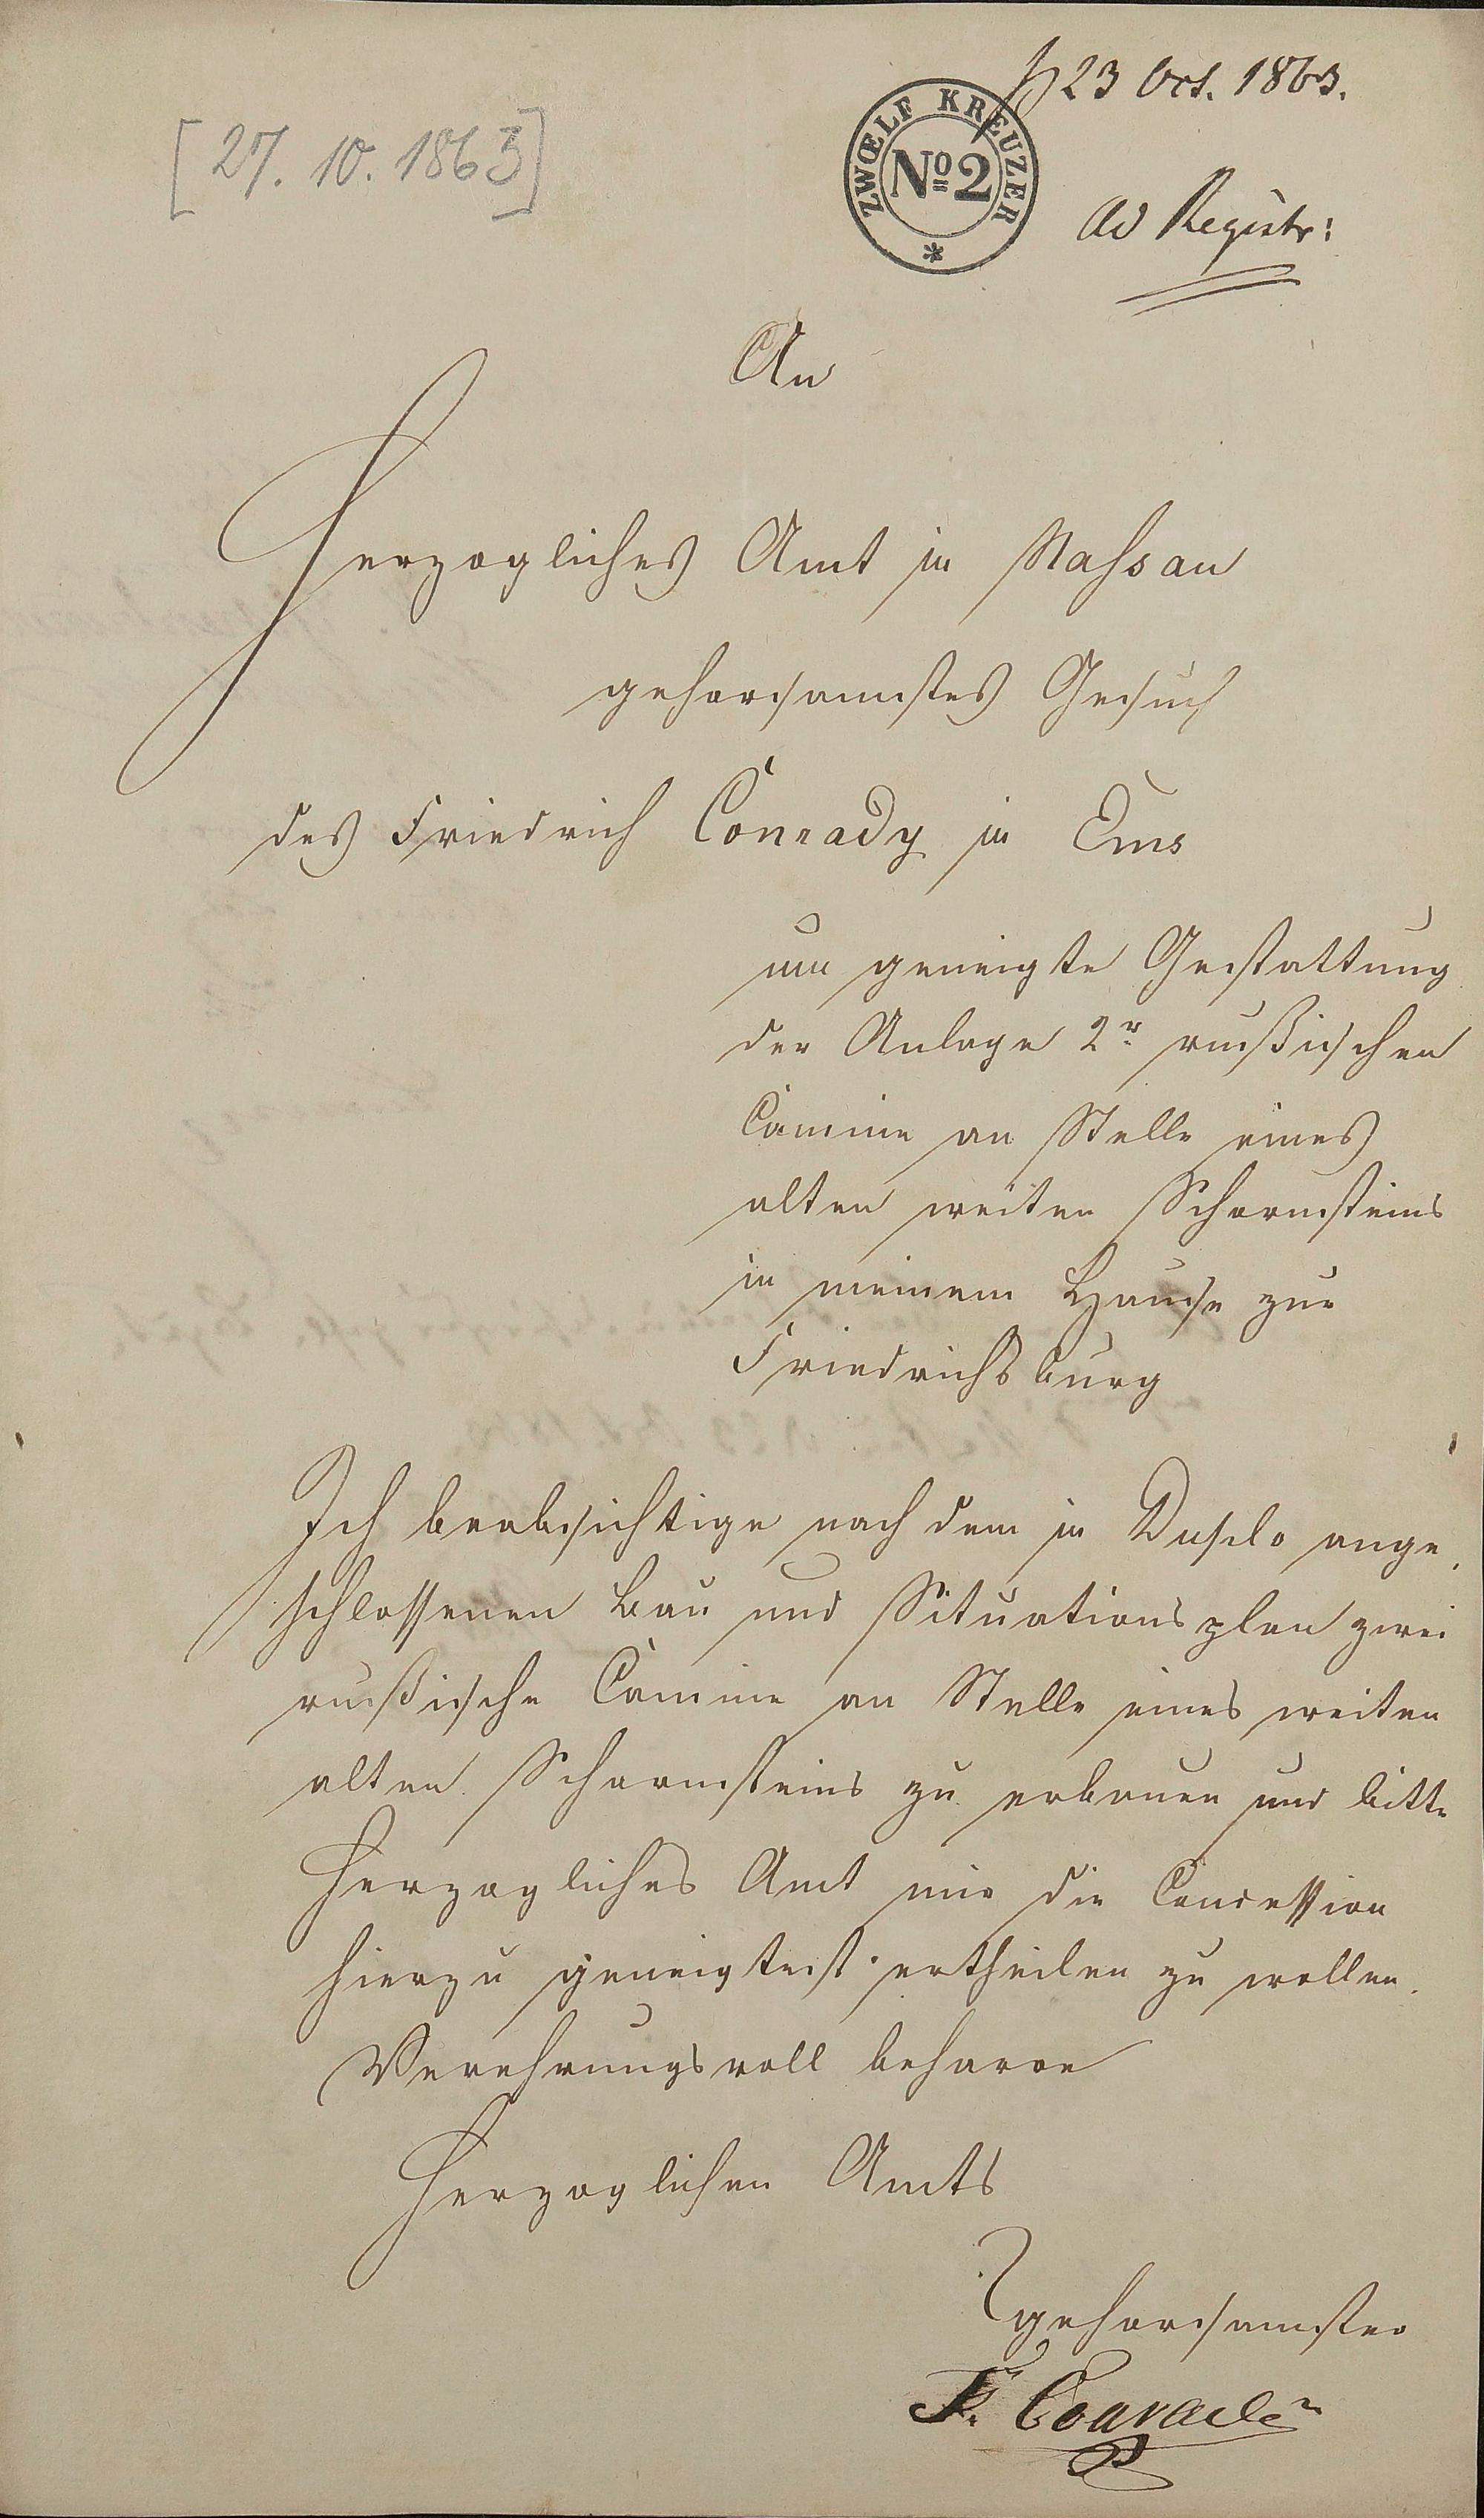 23 Oct. 1863.
[27. 10. 1863]
ZWŒLF KREUZER
Nº 2
*
Ad Registr:
An
Herzogliches Amt in Nassau
gehorsamstes Gesuch
des Friedrich Conrady in Ems
um geneigte Gestattung
der Anlage 2r rußischen
Camine an Stelle eines
alten weiten Schornsteins
in meinem Hause zur
Friedrichsburg
Ich beabsichtige nach dem in Duplo ange
schlossenen Bau und Situationsplan zwei
rußische Camine an Stelle eines weiten
alten Schornsteins zu erbauen und bitte
Herzogliches Amt mir die Concession
hierzu geneigtest ertheilen zu wollen.
Verehrungsvoll beharre
Herzoglichen Amts
gehorsamster
F. Conrady